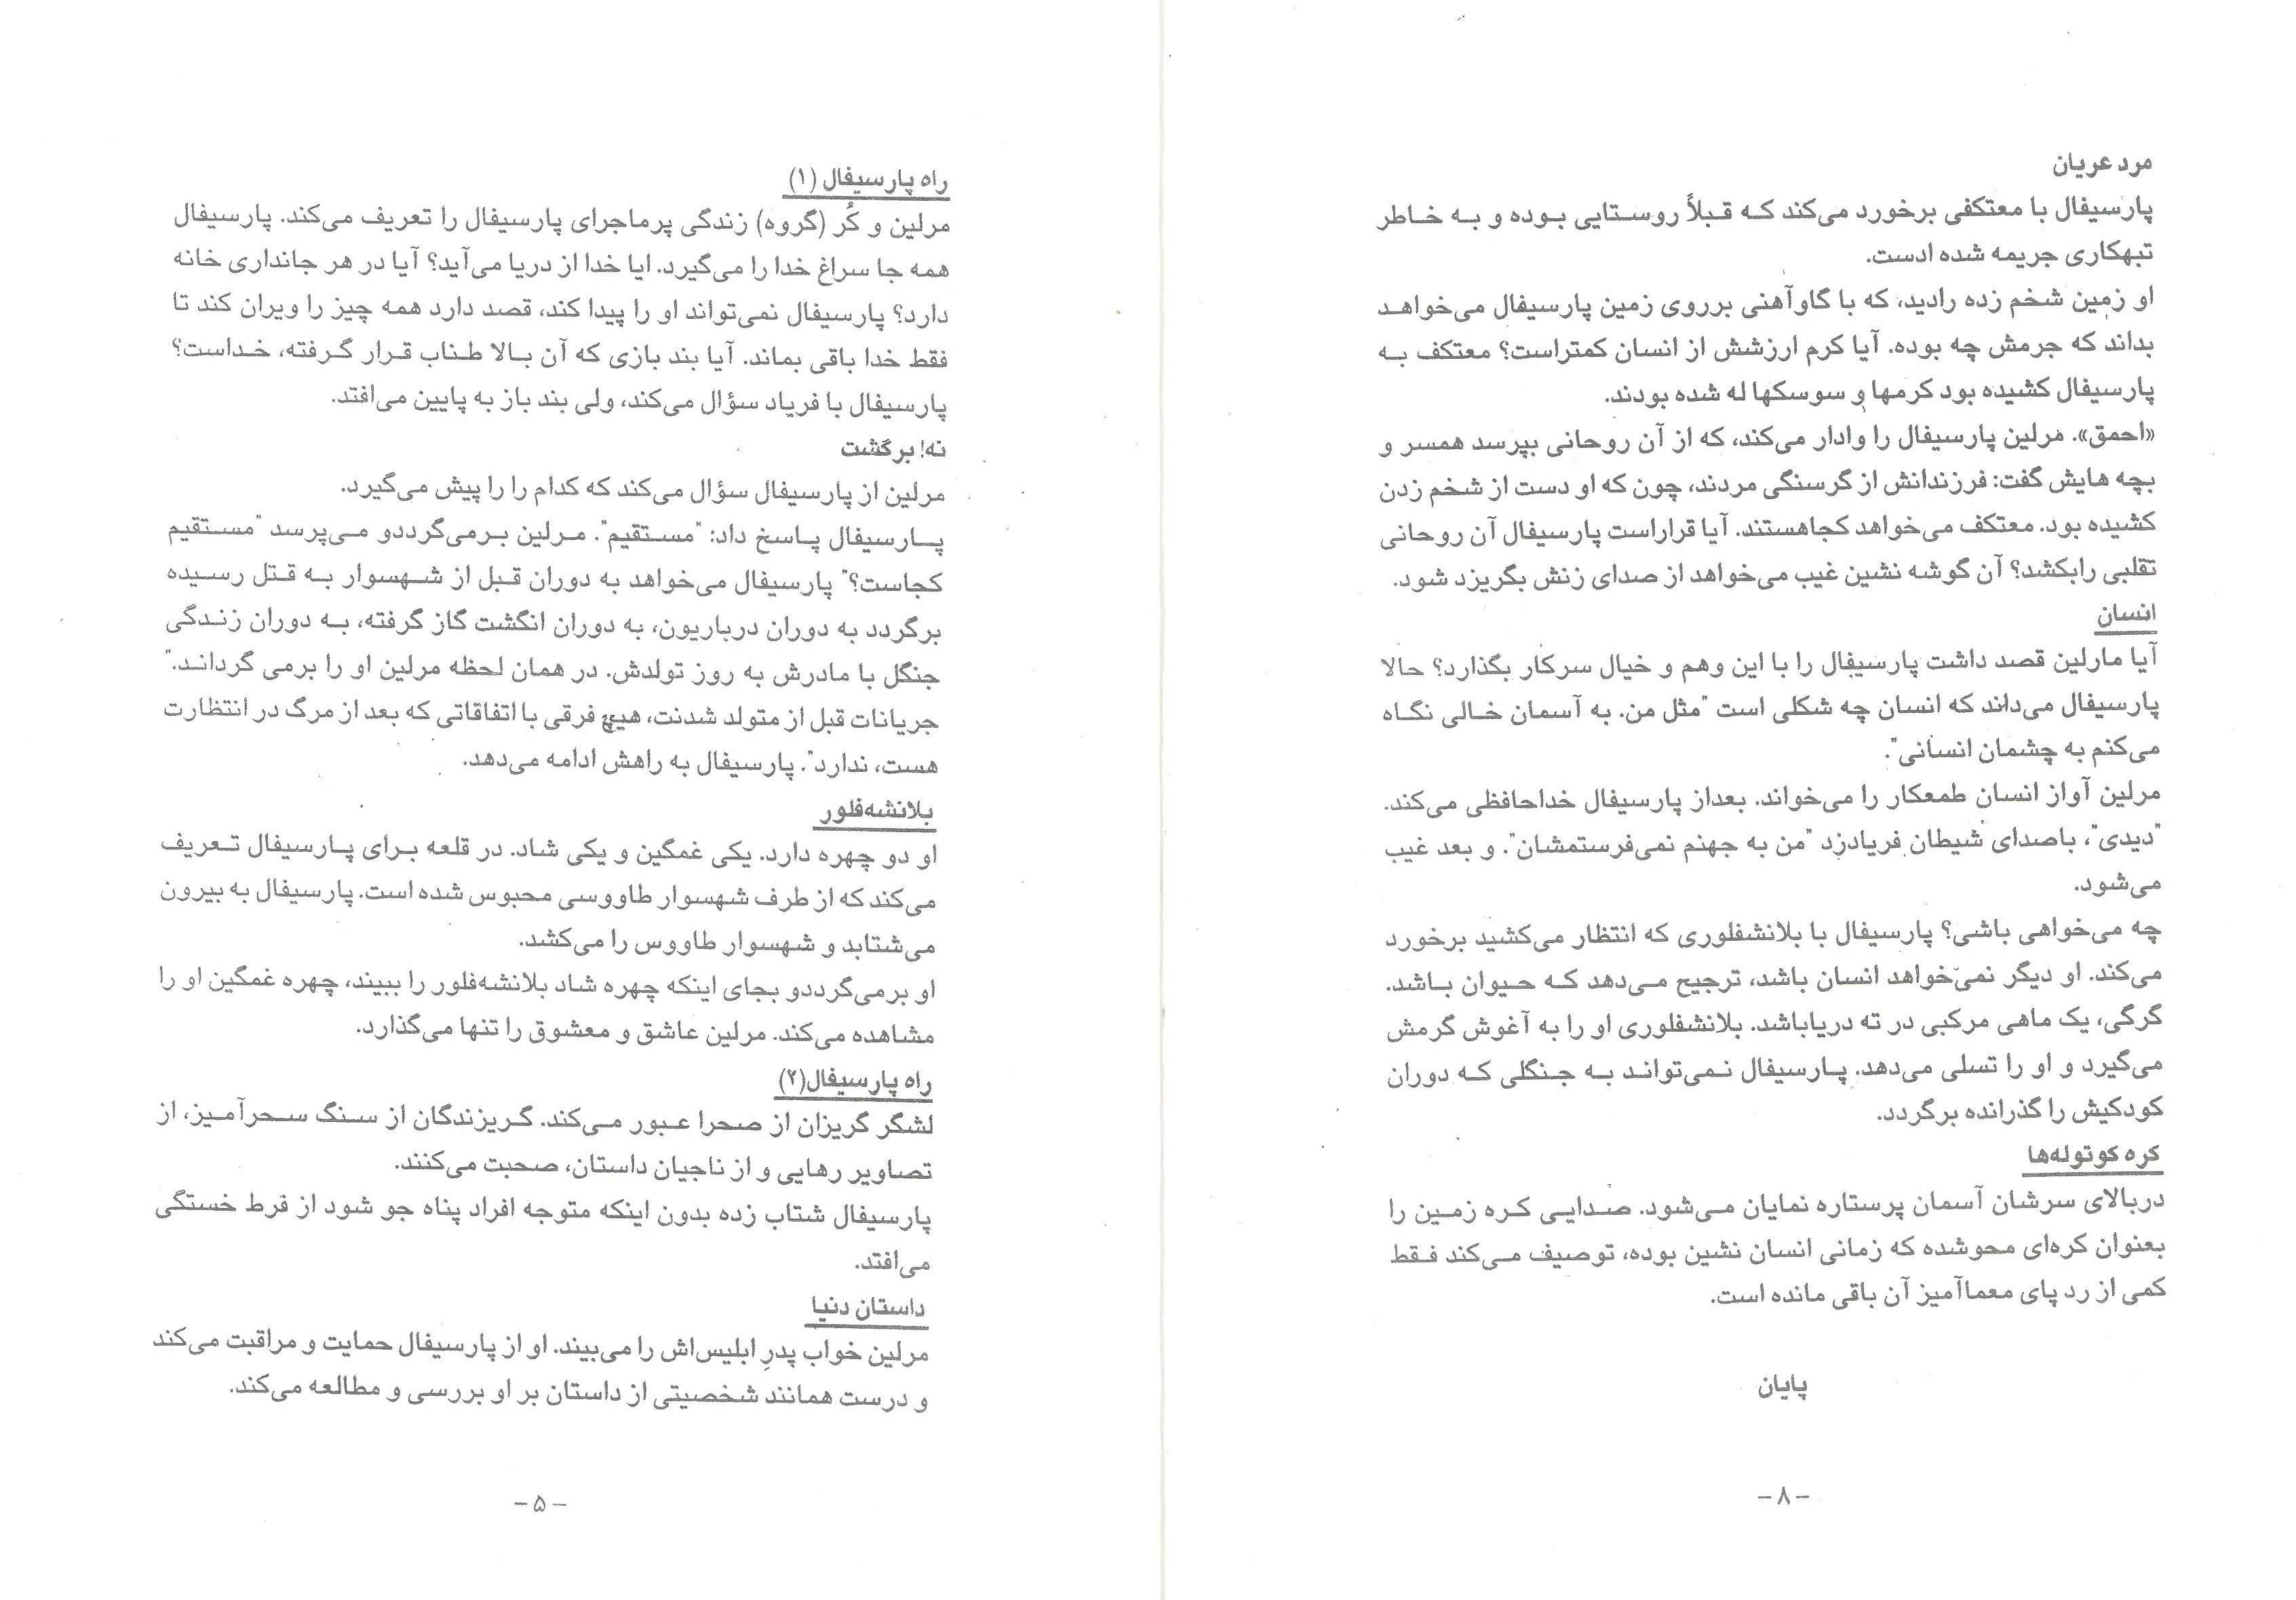 مرد عریان
پارسیفال با معتکفی برخورد می‌کند که قبلاً روستایی بوده و به خاطر
تبهکاری جریمه شده ادست.
او زمین شخم زده رادید، که با گاوآهنی برروی زمین پارسیفال می‌خواهد
بداند که جرمش چه بوده. آیا کرم ارزشش از انسان کمتراست؟ معتکف به
پارسیفال کشیده بود کرمها و سوسکها له شده بودند.
«احمق». مرلین پارسیفال را وادار می‌کند، که از آن روحانی بپرسد همسر و
بچه هایش گفت: فرزندانش از گرسنگی مردند، چون که او دست از شخم زدن
کشیده بود. معتکف می‌خواهد کجاهستند. آیا قراراست پارسیفال آن روحانی
تقلبی رابکشد؟ آن گوشه نشین غیب می‌خواهد از صدای زنش بگریزد شود.
انسان
آیا مارلین قصد داشت پارسیفال را با این وهم و خیال سرکار بگذارد؟ حالا
پارسیفال می‌داند که انسان چه شکلی است "مثل من. به آسمان خالی نگاه
می‌کنم به چشمان انسانی".
مرلین آواز انسان طمعکار را می‌خواند. بعداز پارسیفال خداحافظی می‌کند.
"دیدی"، باصدای شیطان فریادزد "من به جهنم نمی‌فرستمشان". و بعد غیب
می‌شود.
چه می‌خواهی باشی؟ پارسیفال با بلانشفلوری که انتظار می‌کشید برخورد
می‌کند. او دیگر نمی‌خواهد انسان باشد، ترجیح می‌دهد که حیوان باشد.
گرگی، یک ماهی مرکبی در ته دریاباشد. بلانشفلوری او را به آغوش گرمش
می‌گیرد و او را تسلی می‌دهد. پارسیفال نمی‌تواند به جنگلی که دوران
کودکیش را گذرانده برگردد.
کره کوتوله‌ها
دربالای سرشان آسمان پرستاره نمایان می‌شود. صدایی کره زمین را
بعنوان کره‌ای محوشده که زمانی انسان نشین بوده، توصیف می‌کند فقط
کمی از رد پای معماآمیز آن باقی مانده است.
پایان
– ۸ –
راه پارسیفال (۱)
مرلین و کُر (گروه) زندگی پرماجرای پارسیفال را تعریف می‌کند. پارسیفال
همه جا سراغ خدا را می‌گیرد. ایا خدا از دریا می‌آید؟ آیا در هر جانداری خانه
دارد؟ پارسیفال نمی‌تواند او را پیدا کند، قصد دارد همه چیز را ویران کند تا
فقط خدا باقی بماند. آیا بند بازی که آن بالا طناب قرار گرفته، خداست؟
پارسیفال با فریاد سؤال می‌کند، ولی بند باز به پایین می‌افتد.
نه! برگشت
مرلین از پارسیفال سؤال می‌کند که کدام را را پیش می‌گیرد.
پارسیفال پاسخ داد: "مستقیم". مرلین برمی‌گرددو می‌پرسد "مستقیم
کجاست؟" پارسیفال می‌خواهد به دوران قبل از شهسوار به قتل رسیده
برگردد به دوران درباریون، به دوران انگشت گاز گرفته، به دوران زندگی
جنگل با مادرش به روز تولدش. در همان لحظه مرلین او را برمی گرداند."
جریانات قبل از متولد شدنت، هیچ فرقی با اتفاقاتی که بعد از مرگ در انتظارت
هست، ندارد". پارسیفال به راهش ادامه می‌دهد.
بلانشه‌فلور
او دو چهره دارد. یکی غمگین و یکی شاد. در قلعه برای پارسیفال تعریف
می‌کند که از طرف شهسوار طاووسی محبوس شده است. پارسیفال به بیرون
می‌شتابد و شهسوار طاووس را می‌کشد.
او برمی‌گرددو بجای اینکه چهره شاد بلانشه‌فلور را ببیند، چهره غمگین او را
مشاهده می‌کند. مرلین عاشق و معشوق را تنها می‌گذارد.
راه پارسیفال(۲)
لشگر گریزان از صحرا عبور می‌کند. گریزندگان از سنگ سحرآمیز، از
تصاویر رهایی و از ناجیان داستان، صحبت می‌کنند.
پارسیفال شتاب زده بدون اینکه متوجه افراد پناه جو شود از فرط خستگی
می‌افتد.
داستان دنیا
مرلین خواب پدرِ ابلیس‌اش را می‌بیند. او از پارسیفال حمایت و مراقبت می‌کند
و درست همانند شخصیتی از داستان بر او بررسی و مطالعه می‌کند.
– ۵ –